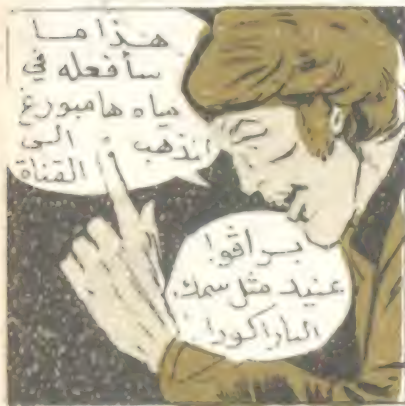 هذا ما
سأفعله في
مياه هامبورغ
لنذهب الى
القناة
براڤو!
عنيد مثل سمك
الباراكورا!